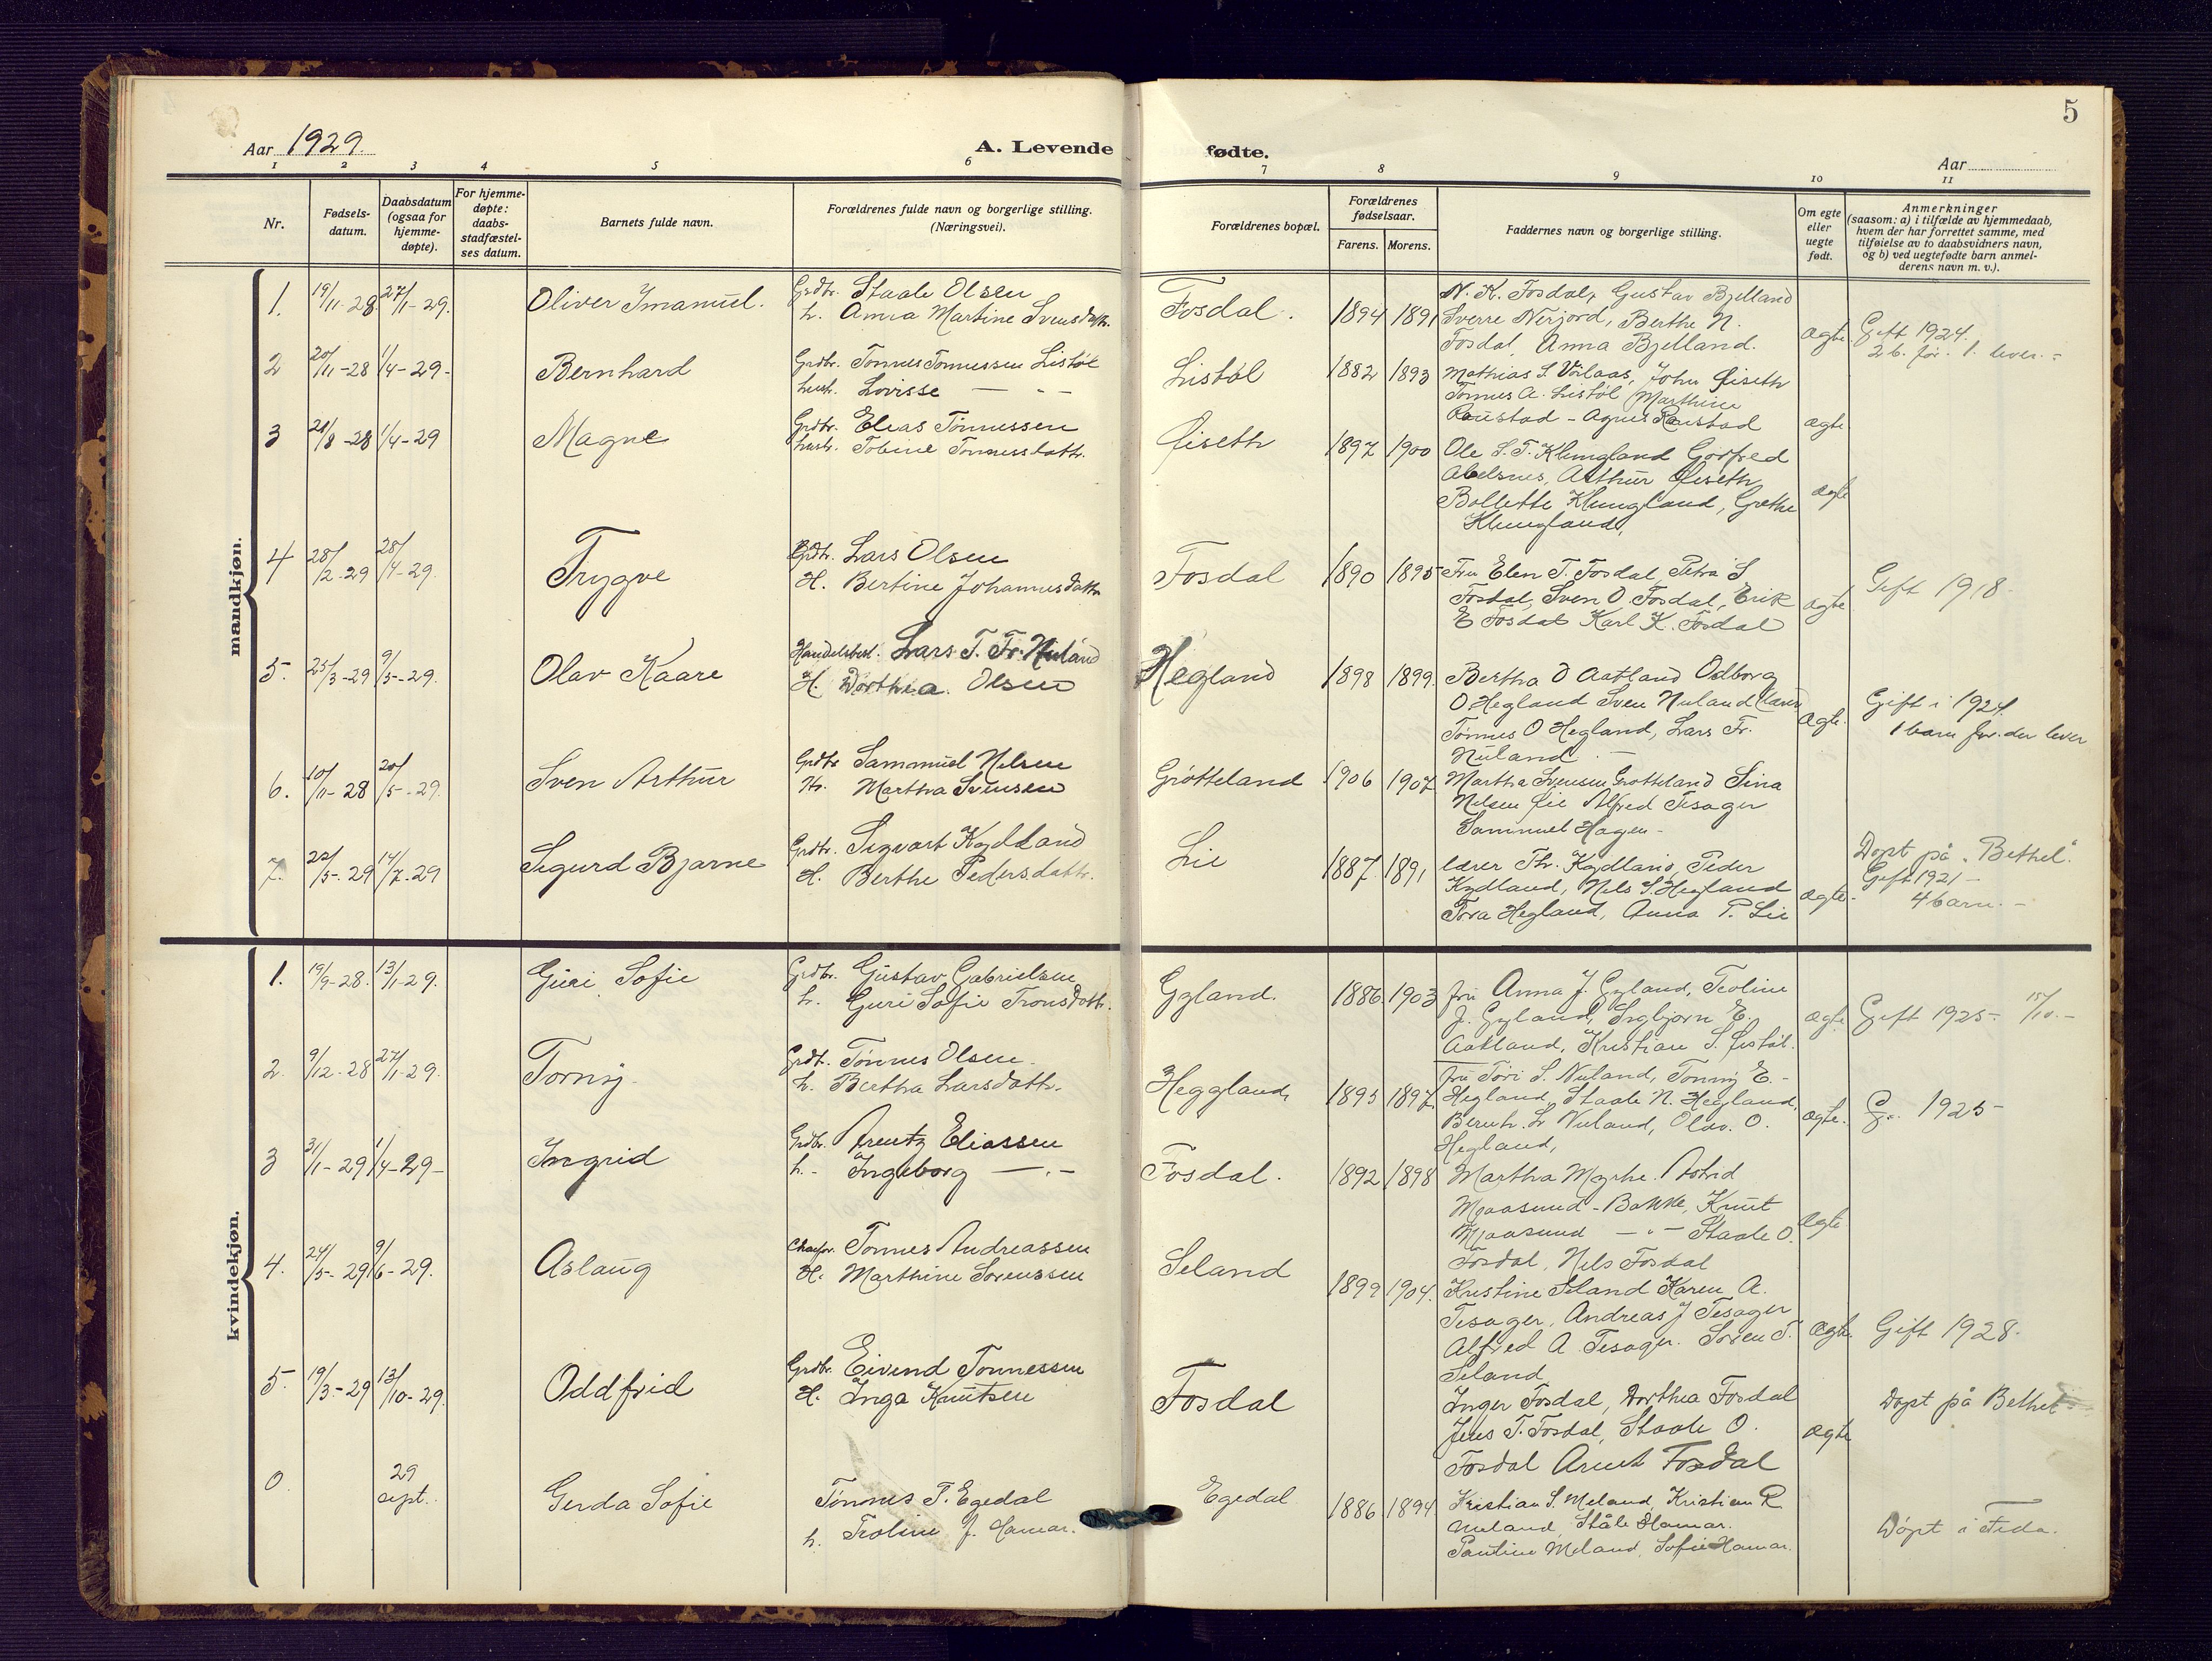 5
Aar 1929.
A. Levende fødte.
Aar
1 2 3 4 5 6 7 8 9 10 11
Nr.
Fødselsdatum.
Daabsdatum (ogsaa for hjemmedøpte).
For hjemmedøpte: daabsstadfæstelses datum.
Barnets fulde navn.
Forældrenes fulde navn og borgerlige stilling. (Næringsvei).
Forældrenes bopæl.
Forældrenes fødselsaar.
Farens. Morens.
Faddernes navn og borgerlige stilling.
Om egte eller uegte født.
Anmerkninger
(saasom: a) i tilfælde av hjemmedaab, hvem der har forrettet samme, med tilføielse av to daabsvidners navn, og b) ved uegtefødte barn anmelderens navn m. v.).
mandkjøn.
1. 19/11-28 27/1-29. Oliver Imanuel.
Grdbr. Staale Olsen
h. Anna Martine Svensdattr.
Fosdal. 1894 1891
N. K. Fosdal, Gustav Bjelland
Sverre Nerjord, Berthe N.
Fosdal, Anna Bjelland.
ægte. Gift 1924.
2 b. før. 1. lever.-
2 20/11-28 1/4-29- Bernhard
Grdbr. Tønnes Tønnessen Listøl
hust. Lovisse — " —
Listøl 1882 1893
Mathias S. John Øiseth
Tønnes A. Listøl Marthine
Raustad - Agnes Raustad
ægte
3 /8-28 1/4-29 Magne
Grdbr. Elias Tønnessen
hustr. Tobine Tønnesdattr.
Øiseth 1897 1900
Ole S. T. Klungland Gotfred
Abelsnes, Arthur Øiseth,
Bollette Klungland, Grethe
Klungland,
ægte
4 28/2-29 28/4-29. Trygve
Grdbr. Lars Olsen
H. Bertine Johannesdattr
Fosdal 1890 1895
Fru Elen T. Fosdal, Petra S
Fosdal, Sven O. Fosdal, Erik
E Fosdal Karl K. Fosdal
ægte Gift 1918-
5. 25/3-29 9/5-29. Olav Kaare
Handelsbest. Lars T. Fr. Nuland
H. Dorthea. Olsen
Hegland 1898 1899.
Bertha O Aatland Odborg
O Hegland Sven Nuland
Tønnes O Hegland, Lars Fr.
Nuland -
ægte. Gift i 1924
1 barn før. der lever
6. 10/11-28 20/5-29. Sven Arthur
Grdbr Sammuel Nilsen
H. Martha Svensen
Grøtteland 1906 1907
Martha Svensen Grøtteland Sina
Nilsen Øie Alfred Tesager
Sammuel Hagen-
7. 22/5-29 14/7-29 Sigurd Bjarne
Grdbr. Sigvart Kydland
H. Berthe Pedersdattr.
Lie 1887. 1891
lærer Th. Kydland, Peder
Kydland, Nils S. Hegland
Tora Hegland, Anna P. Lie
ægte- Døpt på "Bethel."
Gift 1921-
4 barn.-
kvindekjøn.
1. 19/9-28. 13/1-29. Guri Sofie
Grdbr. Gustav Gabrielsen
h. Guri Sofie Tronsdattr.
Gyland. 1886 1903
fru Anna J. Gyland, Teoline
J. Gyland, Ingbjørn E.
Aatland, Kristian S.
ægte Gift 1925- 15/10.-
2. 9/12-28 27/1-29. Torny-
Grdbr. Tønnes Olsen-
h. Bertha Larsdattr.
Heggland, 1895 1897.
fru Tori S. Nuland, Tonny E.-
Hegland, Staale N. Hegland,
Bernh. L Nuland, Olav. O.
Hegland,
ægte. G.. 1925-
3 31/1-29 1/4-29- Ingrid
Grdbr. Arentz Eliassen
h.- Ingeborg —.-
Fosdal. 1892 1898
Martha Myrhe. Astrid
Mjaasund - Bakke, Knut
Mjaasund — " — Staale O.
Fosdal, Nils Fosdal
ægte
4. 24/5-29 9/6-29. Aslaug
Chaufør. Tønnes Andreassen
H. Marthine Sørenssen
Seland 1899 1904.
Kristine Seland Karen A.
Tesager, Andreas J Tesager
Alfred A Tesager. Søren T.
Seland
ægte. Gift 1928.
5. 19/3-29 13/10-29. Oddfrid
Grdbr. Eivend Tønnessen
H. Inga Knutsen
Fosdal
Inger Fosdal, Dorthea Fosdal
Jens T. Fosdal, Staale O.
Fosdal Arent Fosdal
ægte Døpt på Bethel
0. 29 sept. Gerda Sofie
Tønnes T. Egedal
h. Teoline J. Hamar.
Egedal 1886 1894
Kristian S. Meland, Kristian R
Meland, Ståle Hamar.
Pauline Meland, Sofie Hamar.
Døpt i Feda.